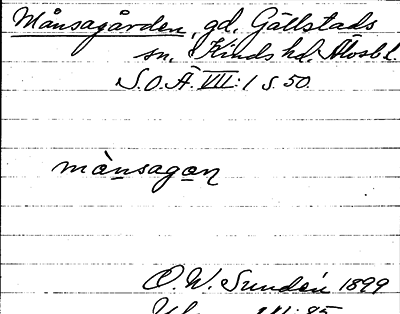 Månsagården, gd, Gällstads
sn. Kinds hd. Älvsbl.
S.O.Ä VII:1 s.50.
månsagɑn
O.W. Sundén 1899